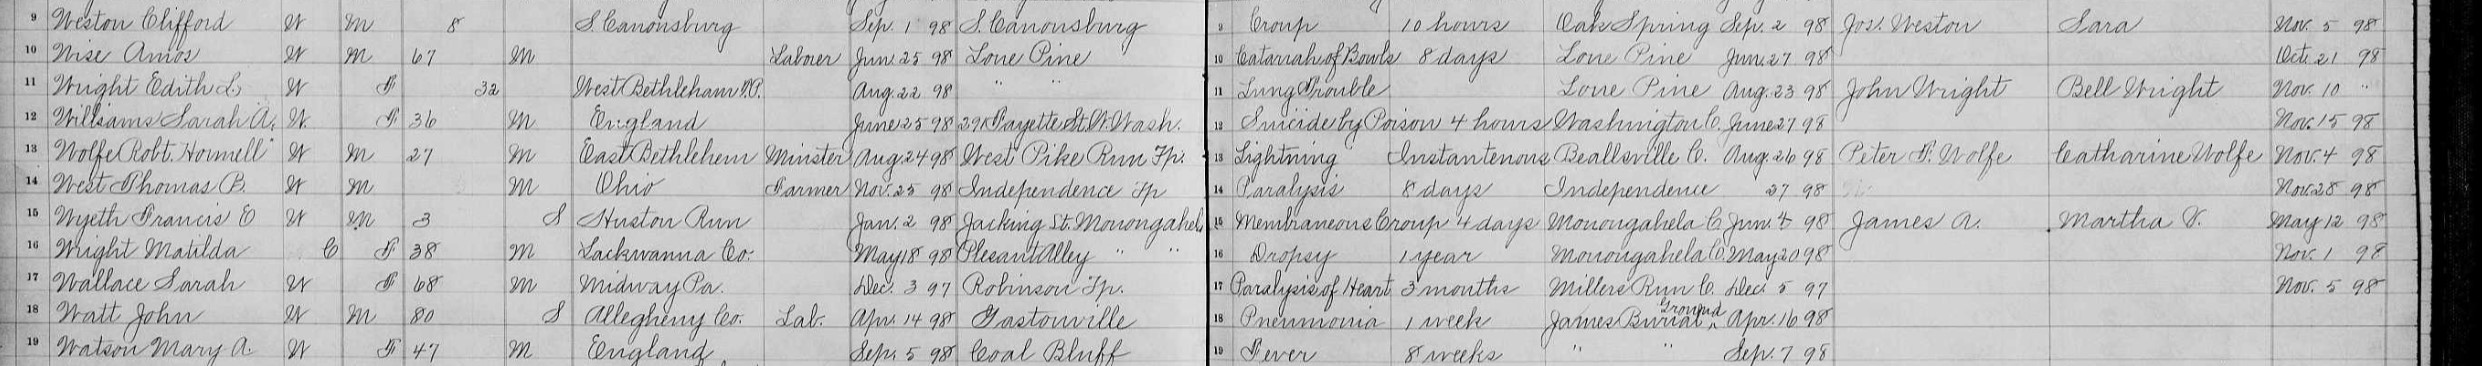 9 Weston Clifford W M 8 S. Canonsburg Sep. 1 98 S. Canonsburg 9 Croup 10 hours Oak Spring Sep. 2 98 Jos. Weston Sara Nov. 5 98
10 Wise Amos W M 67 M Laborer Jun. 25 98 Lone Pine 10 Catarrah of Bowls 8 days Lone Pine Jun. 27 98 Oct. 21 98
11 Wright Edith L. W F 32 West Bethleham Aug. 22 98 " " 11 Lung Trouble Lone Pine Aug. 23 98 John Wright Bell Wright Nov. 10 "
12 Williams Sarah A. W F 36 M England June 25 98 Fayette St. W. Wash. 12 Suicide by Poison 4 hours Washington C. June 27 98 Nov. 15 98
13 Wolfe Robt. Hornell W M 27 M East Bethlehem Minster Aug. 24 98 West Pike Run Tp. 13 Lightning Instantenous Beallsville C. Aug. 26 98 Peter F. Wolfe Catharine Wolfe Nov. 4 98
14 West Thomas B. W M M Ohio Farmer Nov. 25 98 Independence Tp 14 Paralysis 8 days Independence 27 98 Nov. 28 98
15 Wyeth Francis E W M 3 S Huston Run Jan. 2 98 Jacking St. Monongahela 15 Membraneous Croup 4 days Monongahela C. 98 James A. Martha V. May 12 98
16 Wright Matilda C F 38 M Lackwanna Co. May 18 98 Plesant Alley " " 16 Dropsy 1 year Monongahela C. May 20 98 Nov. 1 98
17 Wallace Sarah W F 68 M Midway Pa. Dec. 3 97 Robinson Tp. 17 Paralysis of Heart 3 months Millers Run C. Dec. 5 97 Nov. 5 98
18 Watt John W M 80 S Allegheny Co. Lab. Apr. 14 98 Gastonville 18 Pneumonia 1 week James Burial Ground Apr. 16 98
19 Watson Mary A. W F 47 M England Sep. 5 98 Coal Bluff 19 Fever 8 weeks " " Sep. 7 98